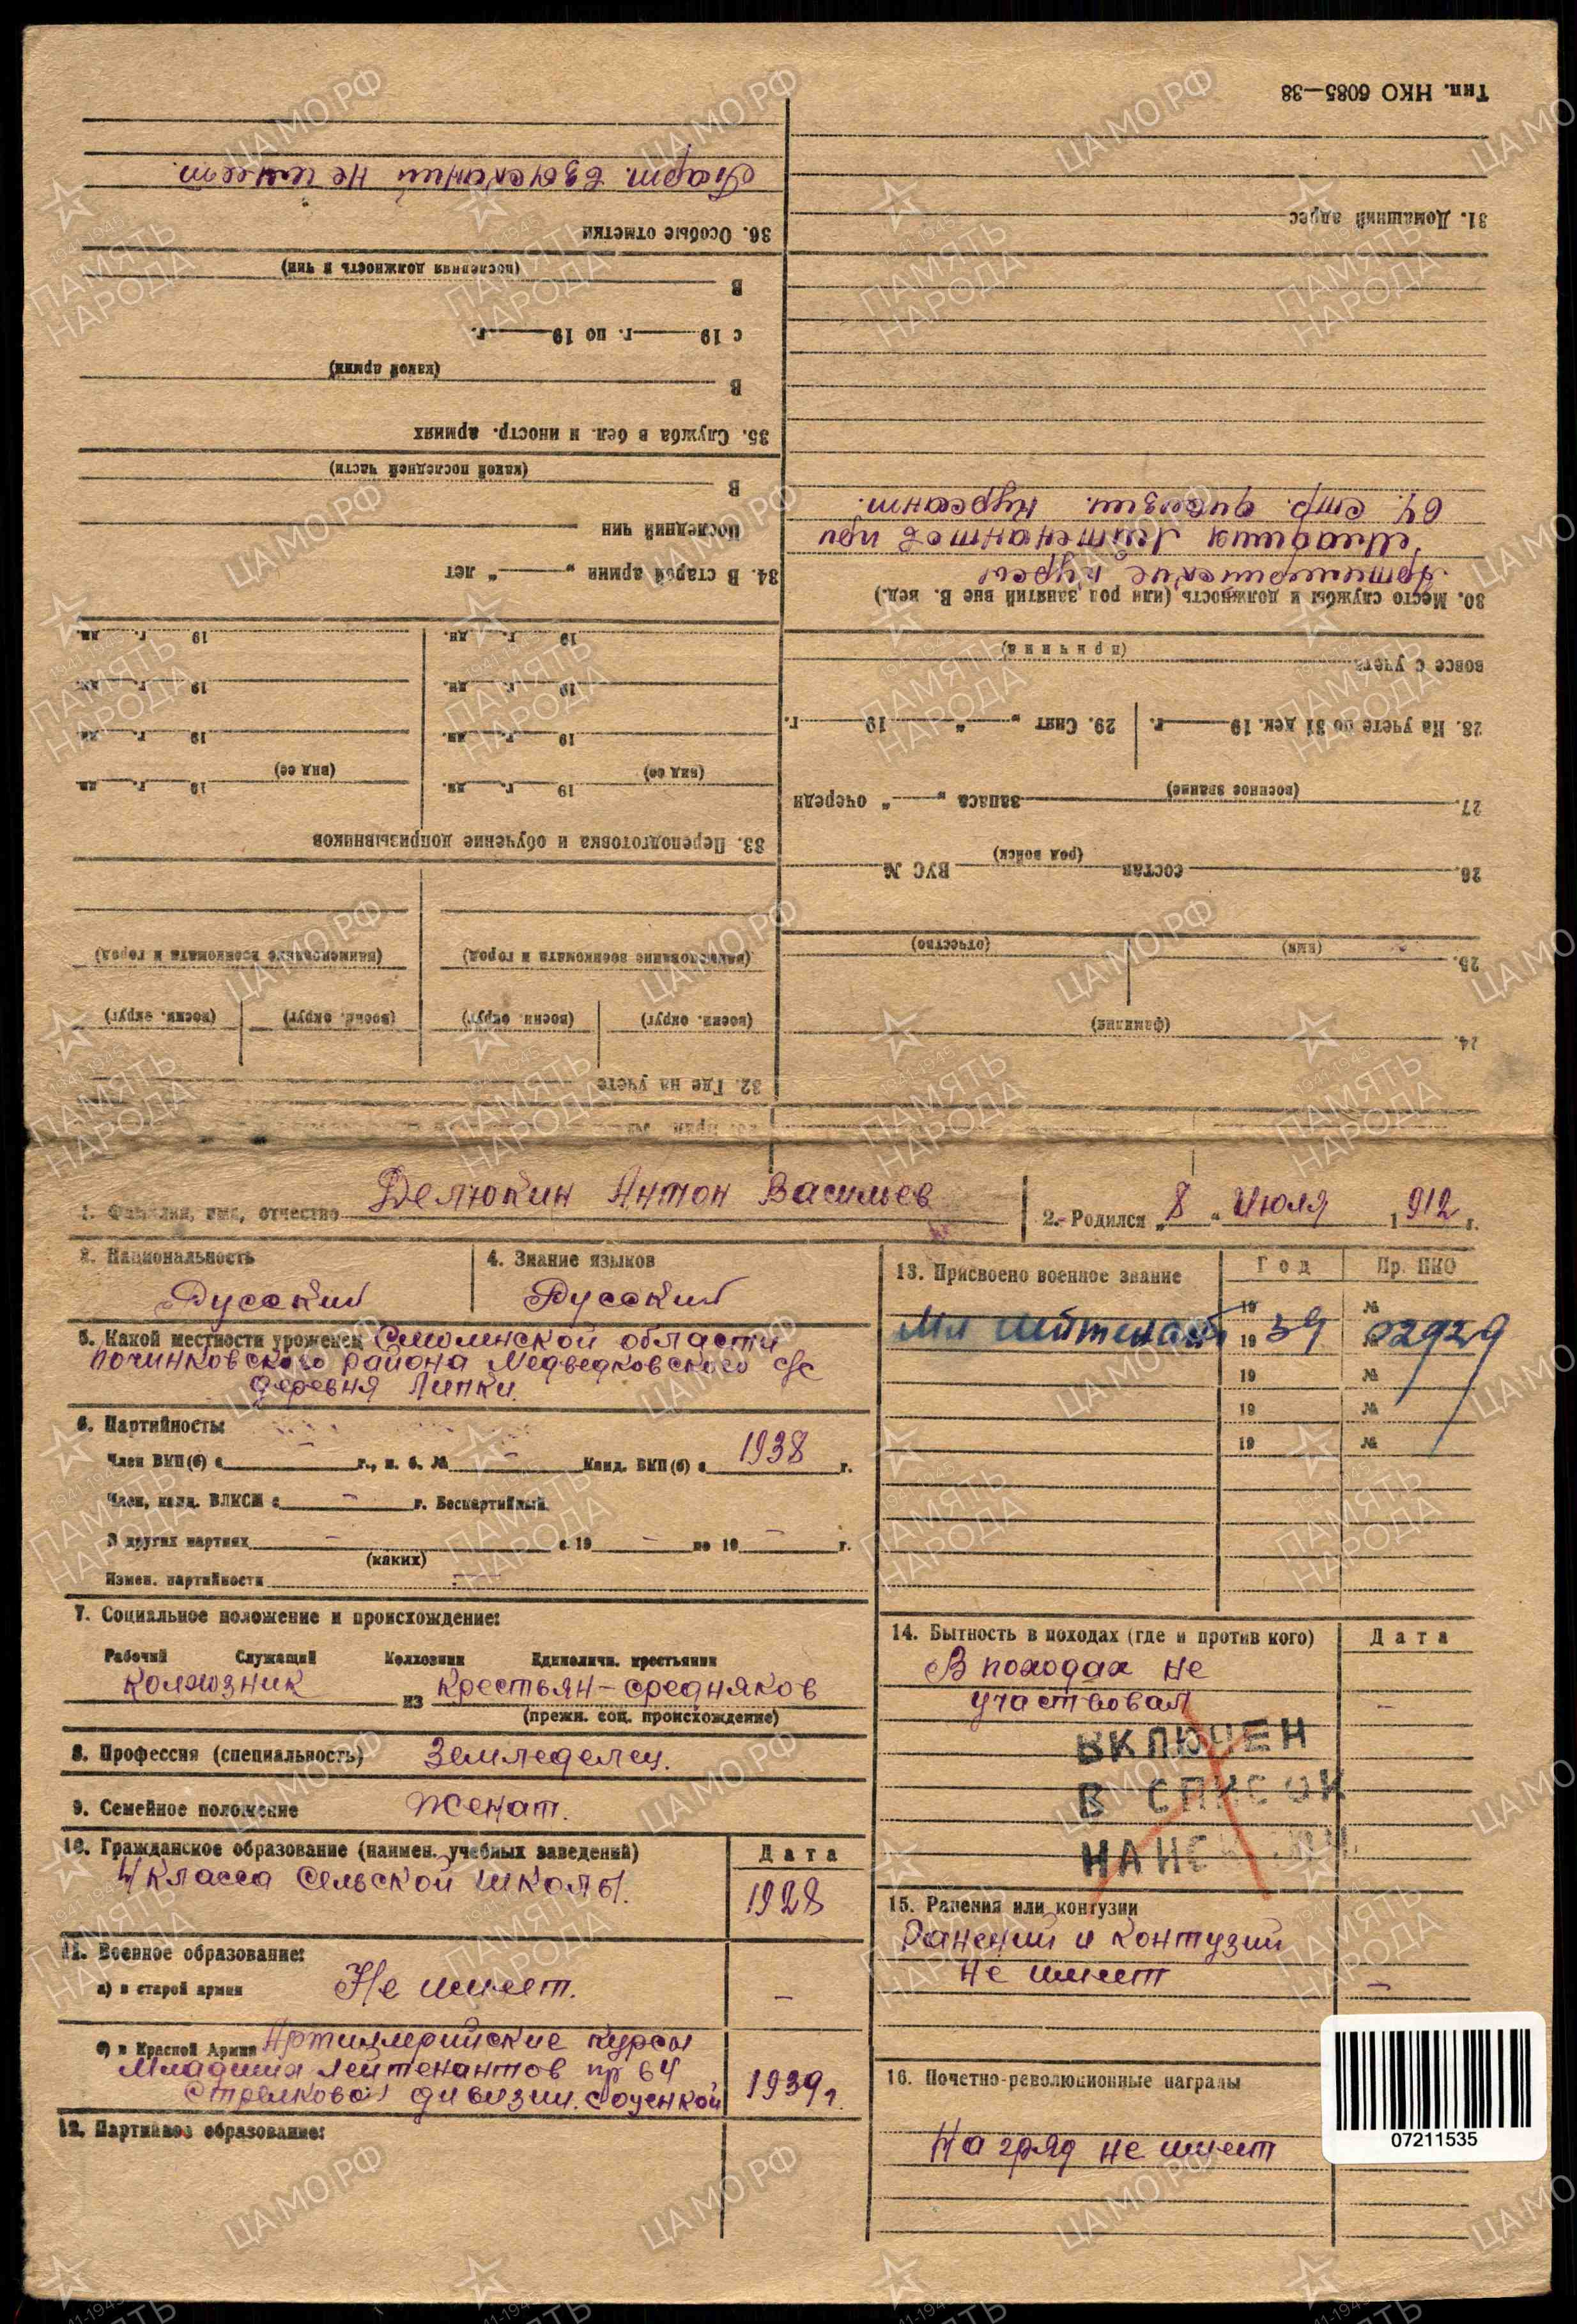 Тип. НКО 6085—38
Парт. взысканий не имеет.
36. Особые отметки
(последняя должность и чин)
В
с 19 г. по 19 г.
(какой армии)
В
35. Служба в бел. и иностр. армиях
(какой последней части)
В
Последний чин
34. В старой армии „ “ лет
19 г. дн. 19 г. дн.
19 г. дн. 19 г. дн.
19 г. дн. 19 г. дн.
(вид ее) (вид ее)
19 г. дн. 19 г. дн.
33. Переподготовка и обучение допризывников
(наименование военкомата и город) (наименование военкомата и город)
(военн. округ) (военн. округ) (военн. округ) (военн. округ)
32. Где на учете
31. Домашний адрес
30. Место службы и должность (или род занятий вне В. вед.)
Артиллерийские курсы
Младших Лейтенантов при
64. стр. дивизии. Курсант.
вовсе с учета
(причина)
28. На учете по 31 дек. 19 г. 29. Снят „ “ 19 г.
27. (военное звание) запаса „ “ очереди
26. состав (род войск) ВУС №
25. (имя) (отчество)
24. (фамилия)
1. Фамилия, имя, отчество Делюкин Антон Васильев
2. Родился „8“ Июля 1912 г.
3. Национальность
Русский
4. Знание языков
Русский
5. Какой местности уроженец Смоленской области
Починковского района Медведковского с/с
деревня Липки.
6. Партийность:
Член ВКП(б) с - г., п. б. № - Канд. ВКП(б) с 1938 г.
Член, канд. ВЛКСМ с - г. Беспартийный
В других партиях - с 19 - по 19 - г.
(каких)
Измен. партийности
7. Социальное положение и происхождение:
Рабочий Служащий Колхозник Единоличн. крестьянин
Колхозник из Крестьян-средняков
(прежн. соц. происхождение)
8. Профессия (специальность) Земледелец.
9. Семейное положение Женат.
10. Гражданское образование (наимен. учебных заведений) Дата
4 класса Сельской школы. 1928
11. Военное образование:
а) в старой армии Не имеет. -
б) в Красной Армии Артиллерийские курсы
Младших лейтенантов пр 64
Стрелковой дивизии. с оценкой 1939 г.
12. Партийное образование:
13. Присвоено военное звание Год Пр. НКО
19 №
Мл Лейтенант 19 39 № 02929
19 №
19 №
19 №
14. Бытность в походах (где и против кого) Дата
В походах не
участвовал -
ВКЛЮЧЕН
В СПИСОК
15. Ранения или контузии
Ранений и контузий
не имеет -
16. Почетно-революционные награды
Наград не имеет
07211535
ЦАМО.РФ
1941-1945
ПАМЯТЬ
НАРОДА